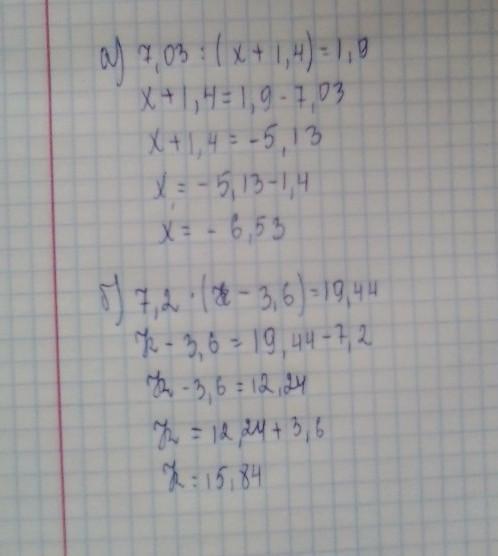 а) 7,03 : (x + 1,4) = 1,9
x + 1,4 = 1,9 - 7,03
x + 1,4 = -5,13
x = -5,13 - 1,4
x = - 6,53
б) 7,2 · (k - 3,6) = 19,44
k - 3,6 = 19,44 - 7,2
k - 3,6 = 12,24
k = 12,24 + 3,6
k = 15,84